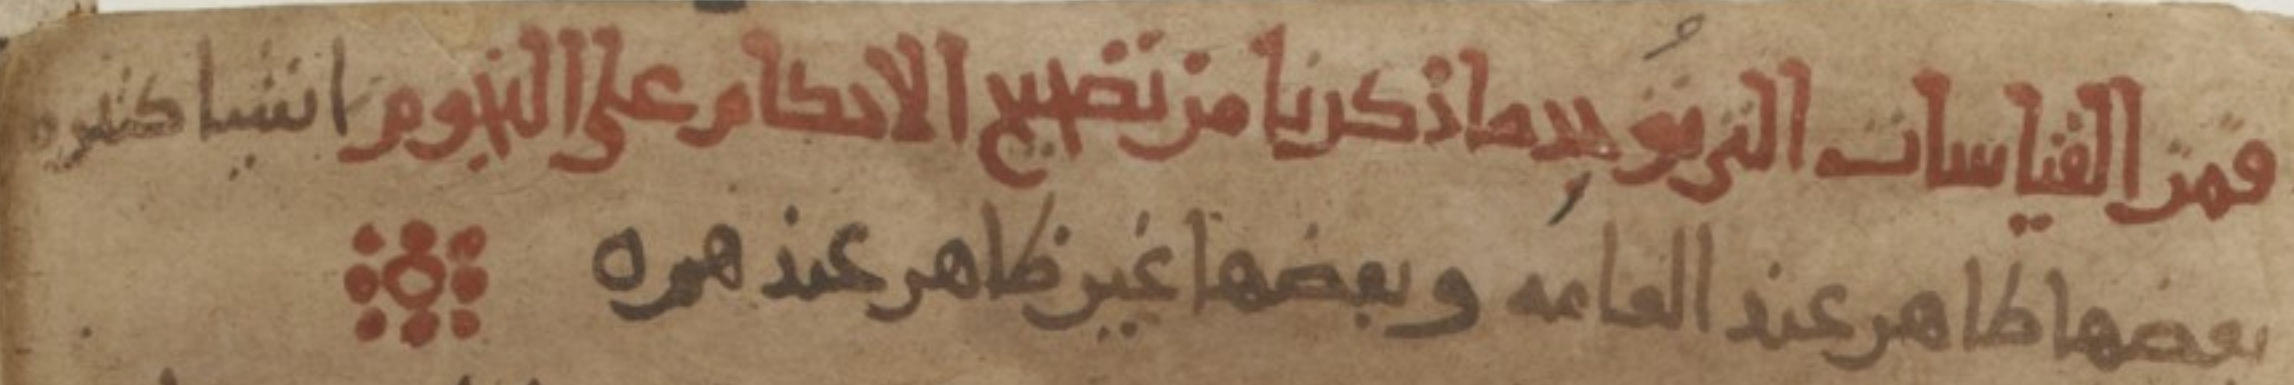 فمن القياسات التي يؤيد ما ذكرنا من تصحيح الاحكام على النجوم اشيا كثيره
بعضها ظاهر عند العامه وبعضها غير ظاهر عندهم ه